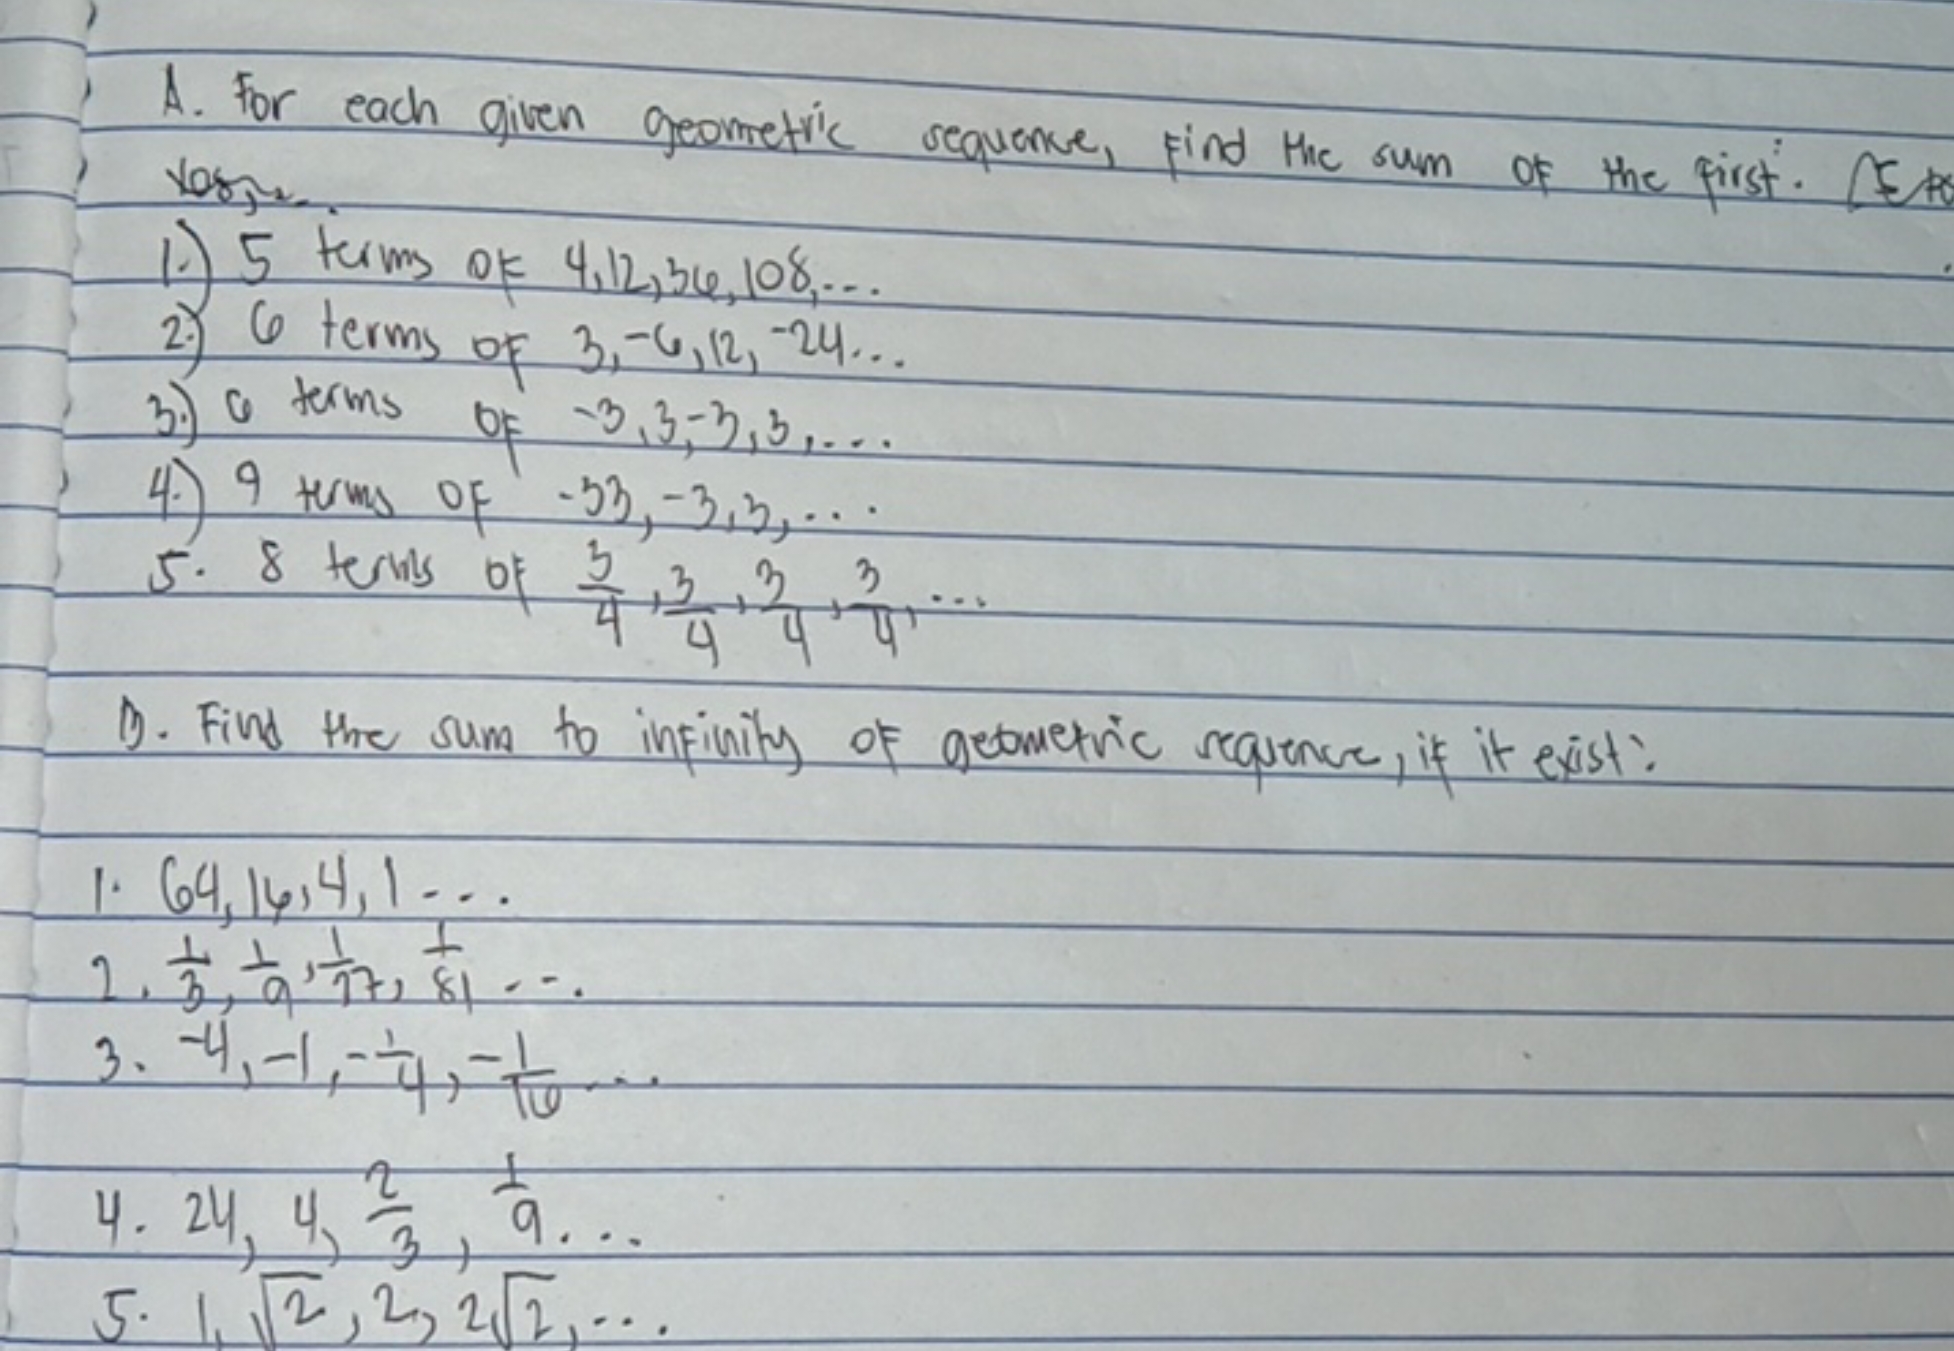 A. For each given geometric sequence, find the sum of the first:
1.) 5 terms of 4, 12, 36, 108, ...
2.) 6 terms of 3, -6, 12, -24 ...
3.) 6 terms of -3, 3, -3, 3, ...
4.) 9 terms of -33, -3, 3, ...
5. 8 terms of 3/4, 3/4, 3/4, 3/4, ...
B. Find the sum to infinity of geometric sequence, if it exist:
1. 64, 16, 4, 1 ...
2. 1/3, 1/9, 1/27, 1/81 ...
3. -4, -1, -1/4, -1/16 ...
4. 24, 4, 2/3, 1/9 ...
5. 1, √2, 2, 2√2, ...